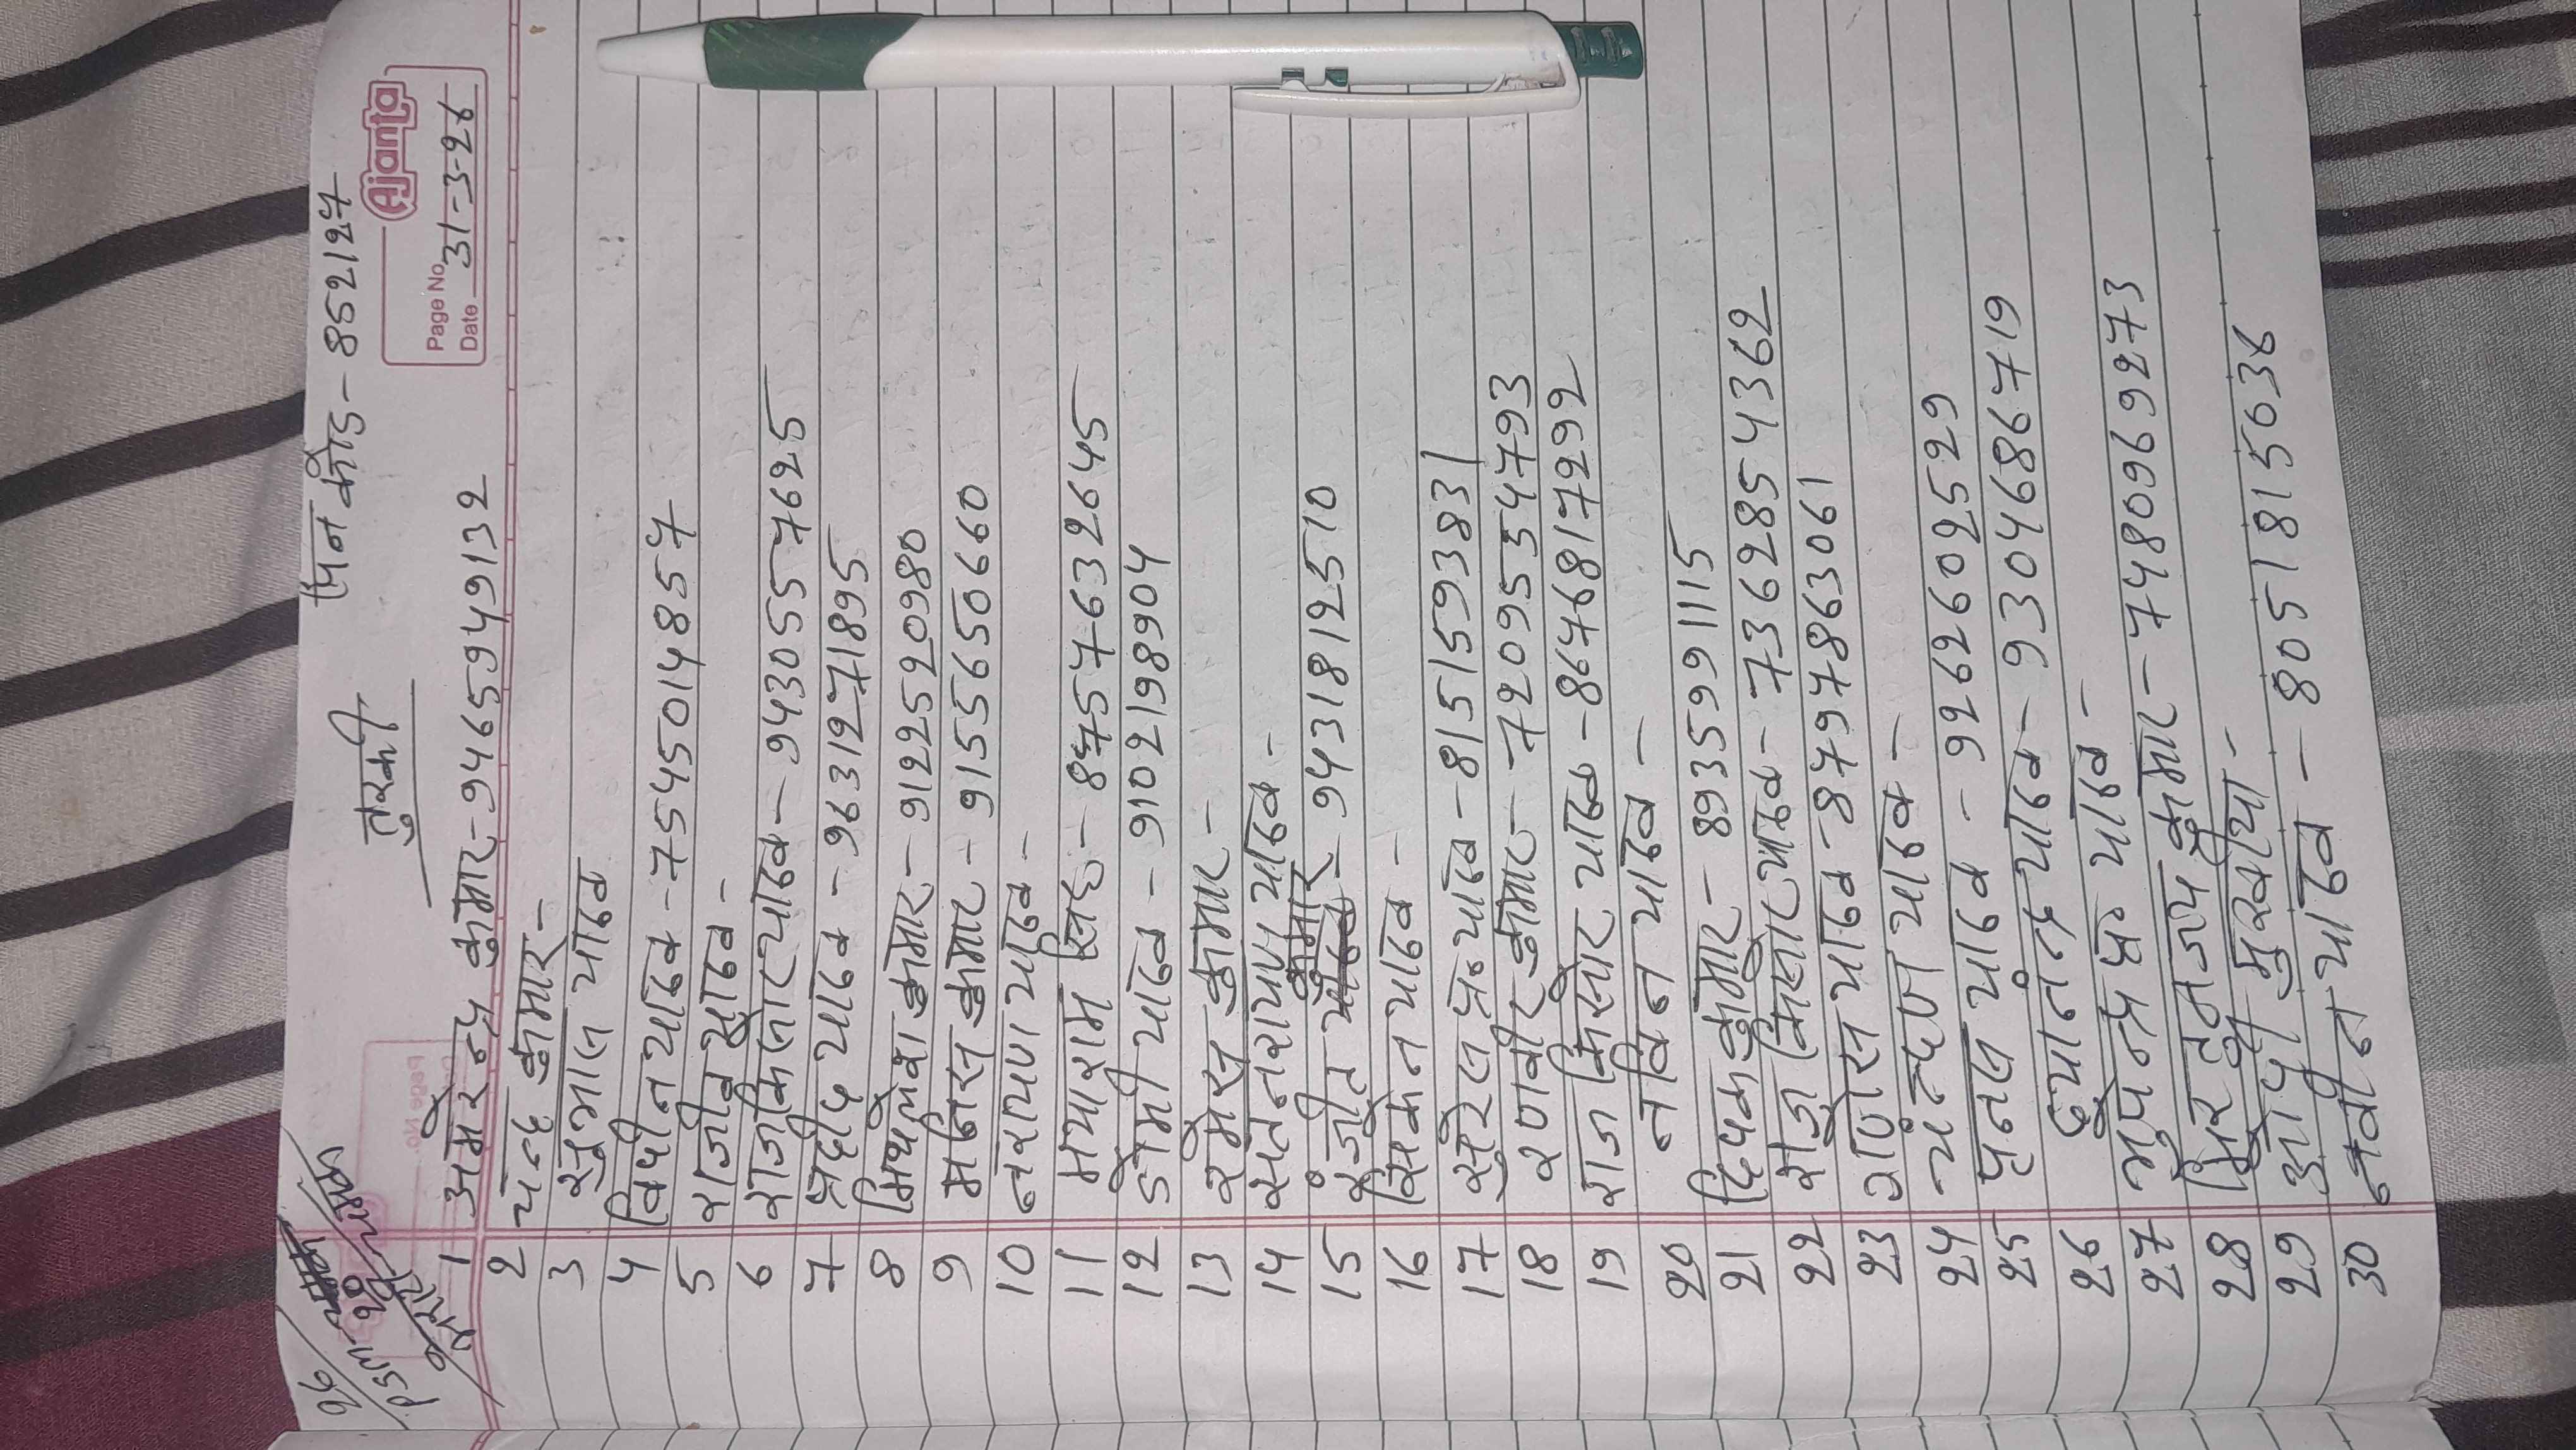 तुरकी पिन कोड - 852127
Ajanta
Page No.
Date 31-3-26
1 अमरेन्द्र कुमार - 9465949132
2 चन्द्र कुमार -
3 सुभाल यादव
4 विपीन यादव - 7545014857
5 राजीव यादव -
6 राजकिसोर यादव - 9430557625
7 प्रदीप यादव - 9631271895
8 मिथलेश कुमार - 9122520980
9 मनिस कुमार - 9155650660
10 नरायण यादव -
11 मयाराम सिंह - 8757632645
12 डोमी यादव - 9102198904
13 रमेस कुमार -
14 सतनरायण यादव -
15 रंजीत कुमार - 9431812510
16 सिकन यादव -
17 सुरेस प्र० यादव - 8151593831
18 रणवीर कुमार - 7209534793
19 राज किसोर यादव - 8676817292
20 नविन यादव -
21 दिपक कुमार - 8935991115
22 राज किसोर यादव - 7362854362
23 गणेस यादव - 8797863061
24 चंन्दण यादव -
25 पुनस यादव - 9262602529
26 दयानन्द यादव - 9304686719
27 भुपेन्द्र प्र० यादव -
28 मिरतुनजय कुमार - 7480969273
29 मुखीया -
30 नवीन यादव - 8051815036